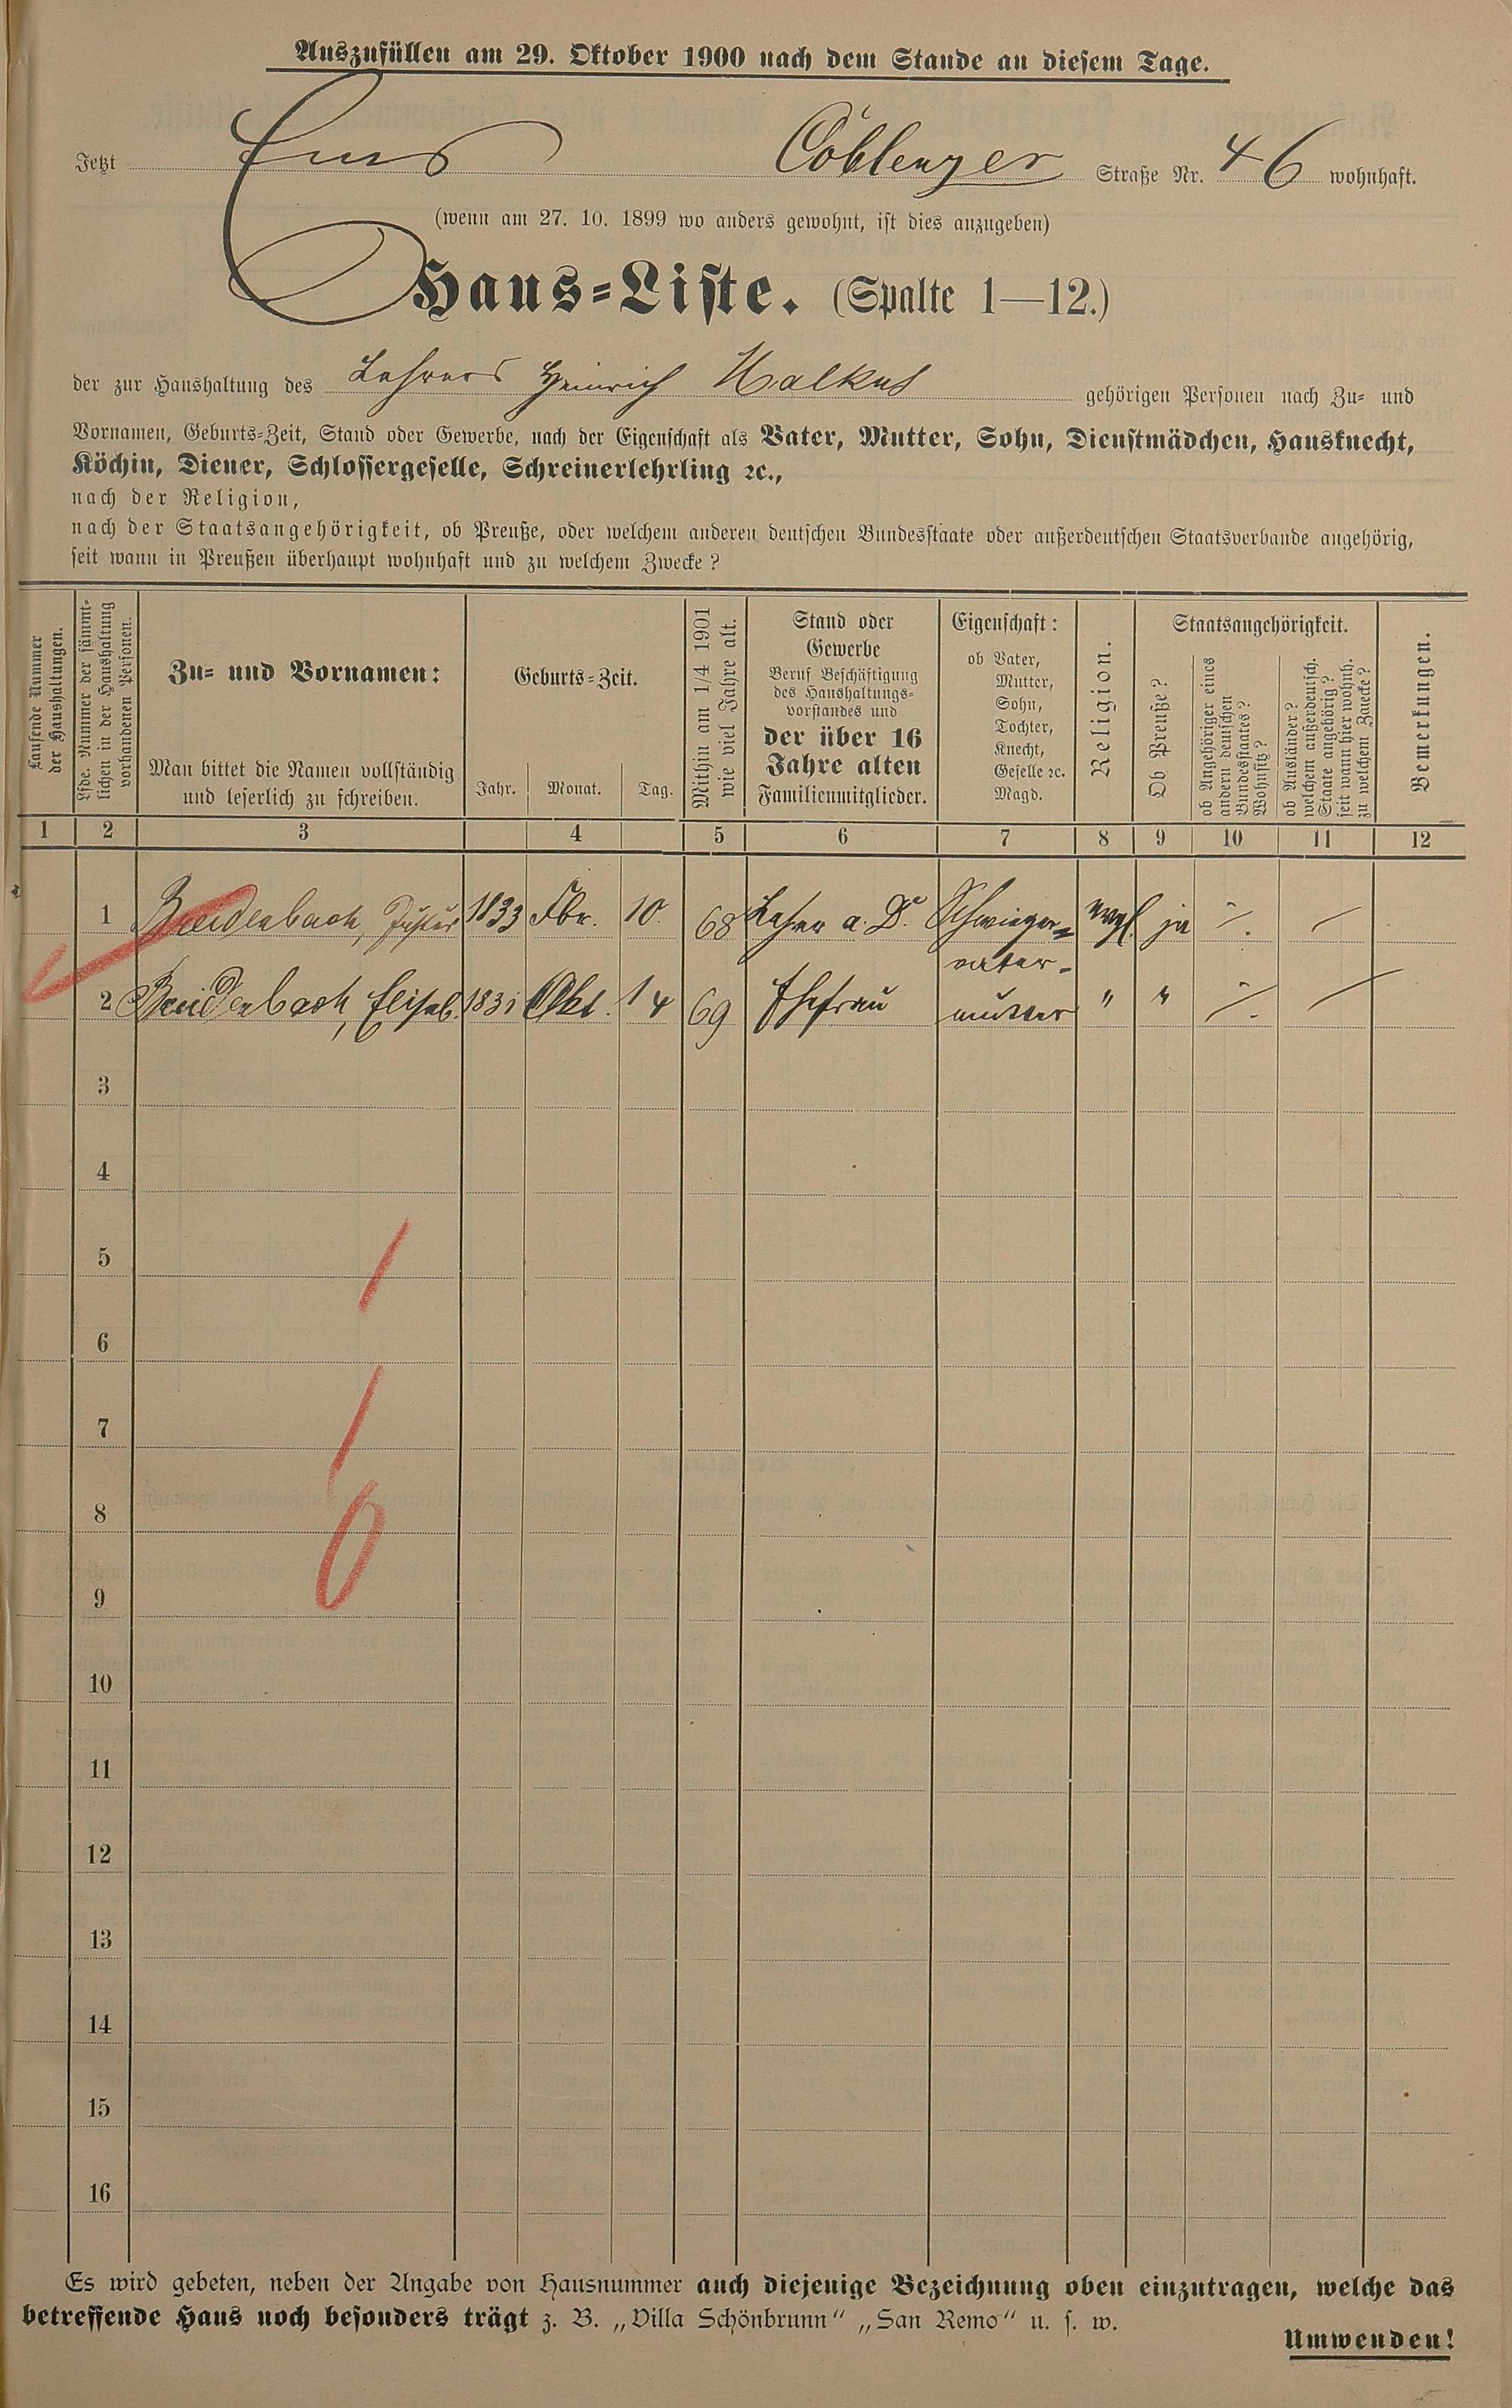 Auszufüllen am 29. Oktober 1900 nach dem Stande an diesem Tage.
Jetzt Ems Coblenzer Straße Nr. 46 wohnhaft.
(wenn am 27. 10. 1899 wo anders gewohnt, ist dies anzugeben)
Haus-Liste. (Spalte 1—12.)
der zur Haushaltung des Lehrers Heinrich gehörigen Personen nach Zu- und
Vornamen, Geburts-Zeit, Stand oder Gewerbe, nach der Eigenschaft als Vater, Mutter, Sohn, Dienstmädchen, Hausknecht,
Köchin, Diener, Schlossergeselle, Schreinerlehrling ꝛc.,
nach der Religion,
nach der Staatsangehörigkeit, ob Preuße, oder welchem anderen deutschen Bundesstaate oder außerdeutschen Staatsverbande angehörig,
seit wann in Preußen überhaupt wohnhaft und zu welchem Zwecke?
Laufende Nummer
der Haushaltungen.
Lfde. Nummer der sämmt-
lichen in der Haushaltung
vorhandenen Personen.
Zu- und Vornamen:
Man bittet die Namen vollständig
und leserlich zu schreiben.
Geburts-Zeit.
Jahr. Monat. Tag.
Mithin am 1/4 1901
wie viel Jahre alt.
Stand oder
Gewerbe
Beruf Beschäftigung
des Haushaltungs-
vorstandes und
der über 16
Jahre alten
Familienmitglieder.
Eigenschaft:
ob Vater,
Mutter,
Sohn,
Tochter,
Knecht,
Geselle ꝛc.
Magd.
Religion.
Staatsangehörigkeit.
Ob Preuße?
ob Angehöriger eines
andern deutschen
Bundesstaates?
Wohnsitz?
ob Ausländer?
welchem außerdeutsch.
Staate angehörig?
seit wann hier wohnh.
zu welchem Zwecke?
Bemerkungen.
1 2 3 4 5 6 7 8 9 10 11 12
1 Breidenbach, 1833 Fbr. 10. 68 Lehrer a. D. Schwieger=
vater-
evgl. ja ·/. /
2 Breidenbach, Elisab. 1831 Okt. 14 69 Ehefrau mutter " " ·/. /
3
4
5
6
7
8
9
10
11
12
13
14
15
16
Es wird gebeten, neben der Angabe von Hausnummer auch diejenige Bezeichnung oben einzutragen, welche das
betreffende Haus noch besonders trägt z. B. „Villa Schönbrunn“ „San Remo“ u. s. w.
Umwenden!